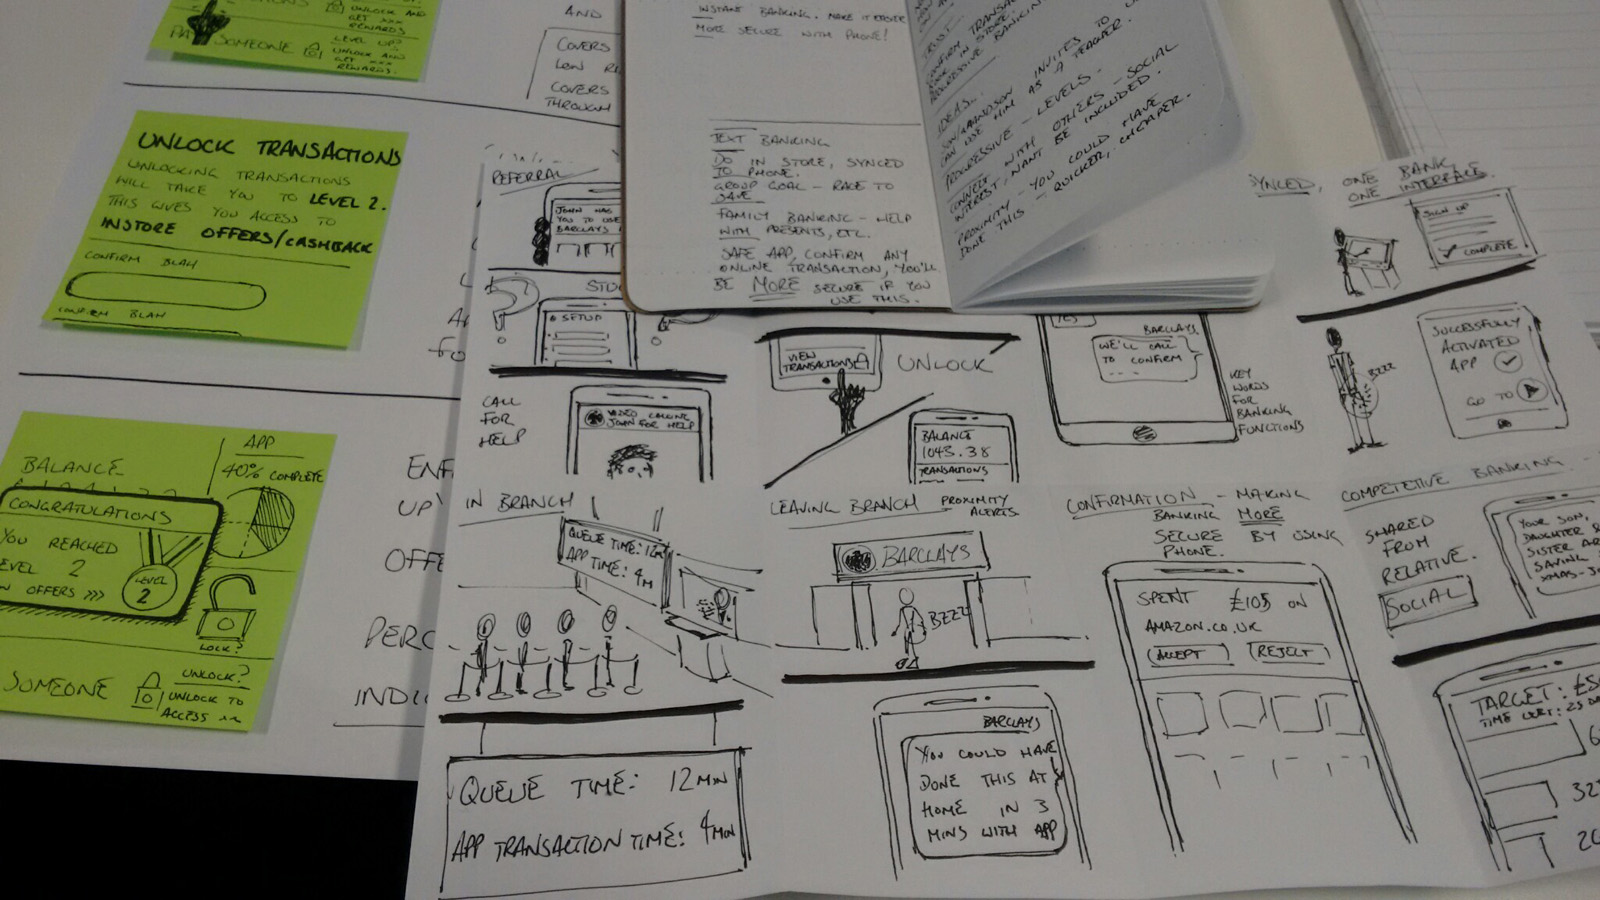 UNLOCK AND
GET XXX
REWARDS
SOMEONE
LEVEL UP?
UNLOCK AND
GET XXX
REWARDS.
UNLOCK TRANSACTIONS
UNLOCKING TRANSACTIONS
WILL TAKE YOU TO LEVEL 2.
THIS GIVES YOU ACCESS TO
INSTORE OFFERS/CASHBACK
CONFIRM BLAH
CONFIRM BLAH
BALANCE
APP
40% COMPLETE
CONGRATULATIONS
YOU REACHED
LEVEL 2
OFFERS >>>
LEVEL
2
LOCK?
SOMEONE
UNLOCK?
UNLOCK TO
ACCESS
AND
COVERS
COVERS
THROUGH
UP'
OFFE
PERC
INDI
INSTANT BANKING. MAKE IT EASIER
MORE SECURE WITH PHONE!
TEXT BANKING
DO IN STORE, SYNCED
TO PHONE.
GROUP GOAL - RACE TO
SAVE
FAMILY BANKING - HELP
WITH PRESENTS, ETC.
SAFE APP, CONFIRM ANY
ONLINE TRANSACTION, YOU'LL
BE MORE SECURE IF YOU
USE THIS.
TRUST
CONFIRM TRANSACT
IN STORE.
PROGRESSIVE BANKING
IDEAS...
SON/GRANDSON INVITES TO
CAN USE HIM AS A TEACHER.
PROGRESSIVE - LEVELS.
CONNECT WITH OTHERS - SOCIAL
INTEREST, WANT BE INCLUDED.
PROXIMITY - YOU COULD HAVE
DONE THIS - QUICKER, CHEAPER.
REFERRAL
JOHN HAS
YOU TO USE
BARCLAYS
SETUP
CALL
FOR
HELP
VIDEO CALLING
JOHN FOR HELP
VIEW
TRANSACTIONS
UNLOCK
BALANCE
1043.38
TRANSACTIONS
YES
BARCLAYS
WE'LL CALL
TO CONFIRM
...
KEY
WORDS
FOR
BANKING
FUNCTIONS
SYNCED, ONE BANK
ONE INTERFACE.
SIGN UP
COMPLETE
BZZZ
SUCCESSFULLY
ACTIVATED
APP
GO TO
IN BRANCH
QUEUE TIME: 12M
APP TIME: 4M
QUEUE TIME: 12MIN
APP TRANSACTION TIME: 4MIN
LEAVING BRANCH PROXIMITY
ALERTS
BARCLAYS
BZZZ
BARCLAYS
YOU COULD HAVE
DONE THIS AT
HOME IN 3
MINS WITH APP
CONFIRMATION - MAKING
BANKING MORE
SECURE BY USING
PHONE.
SPENT £105 ON
AMAZON.CO.UK
ACCEPT REJECT
COMPETETIVE BANKING -
SHARED
FROM
RELATIVE.
SOCIAL
YOUR SON,
DAUGHTER &
SISTER ARE
SAVING
XMAS-
TARGET: £50
TIME LEFT: 25 DA